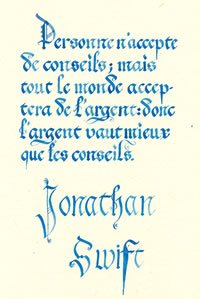 Personne n'accepte
de conseils; mais
tout le monde accep-
tera de l'argent: donc
l'argent vaut mieux
que les conseils.
Jonathan
Swift